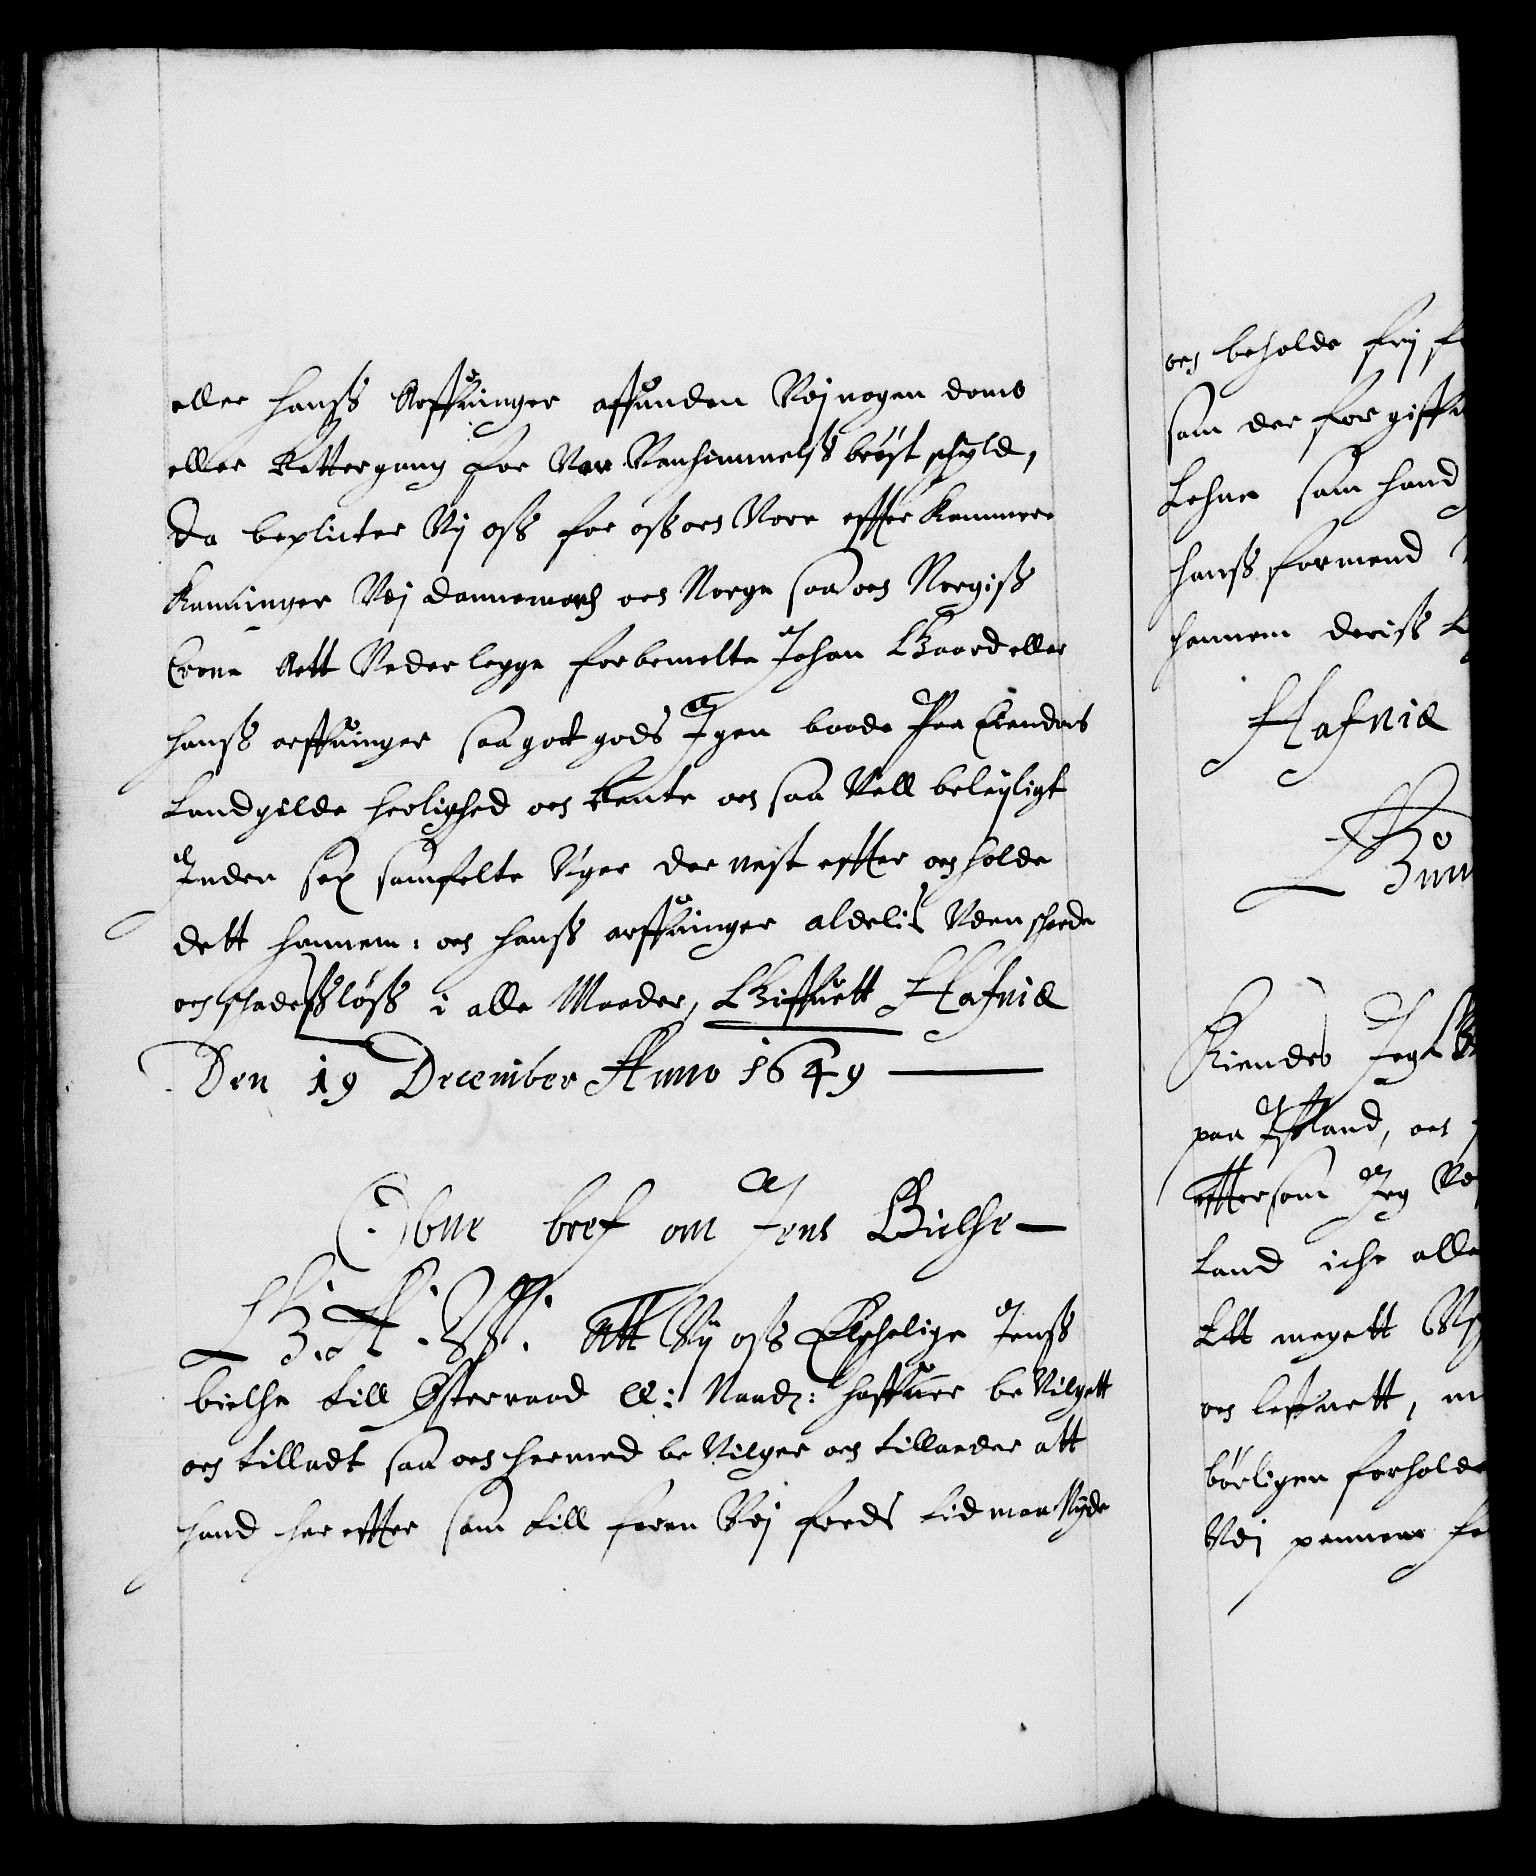 eller hanß Arffuinger affuunden Ved nogen domb
eller Rettergang for Vor Vanhimmelß brøst schyld,
Da bepligter Vij oß for oß och Vore effter kommere
Konninger Vdj Dannemarch och Norge saa och Norgiß
Crone Att Vederlegge forbemelte Johan Gaard eller
hanß arffuinger saa gott gods Igen baade Paa Eiendoms
Landgilde herlighed och Rente och saa Vell beleyligt
Inden sex samfelte Vger der nest effter och holde
dett hannem: och hanß arffuinger aldelis Vden schade
och schadeßløß i alle Maader, Giffuett Hafniæ
Den 19 December Anno 1649
Obne bref om Jens Bielche
G. A. W. Att Vij oß Elschelige Jenß
bielche till Østeraad &: Naad: haffuer beVilgett
och tilladt saa och hermed beVilger och tillader att
hand her effter som till foren Vdj freds tid maa Nyde
och beholde frij
som der for giffu
Lehne som hand
hanß formend
hannem deriß
Hafniæ
Kiendes Jeg
paa Ißland, och
effter som Jeg
Land iche alle
Ett meget
och lefuett,
børligen forholde
Vdj